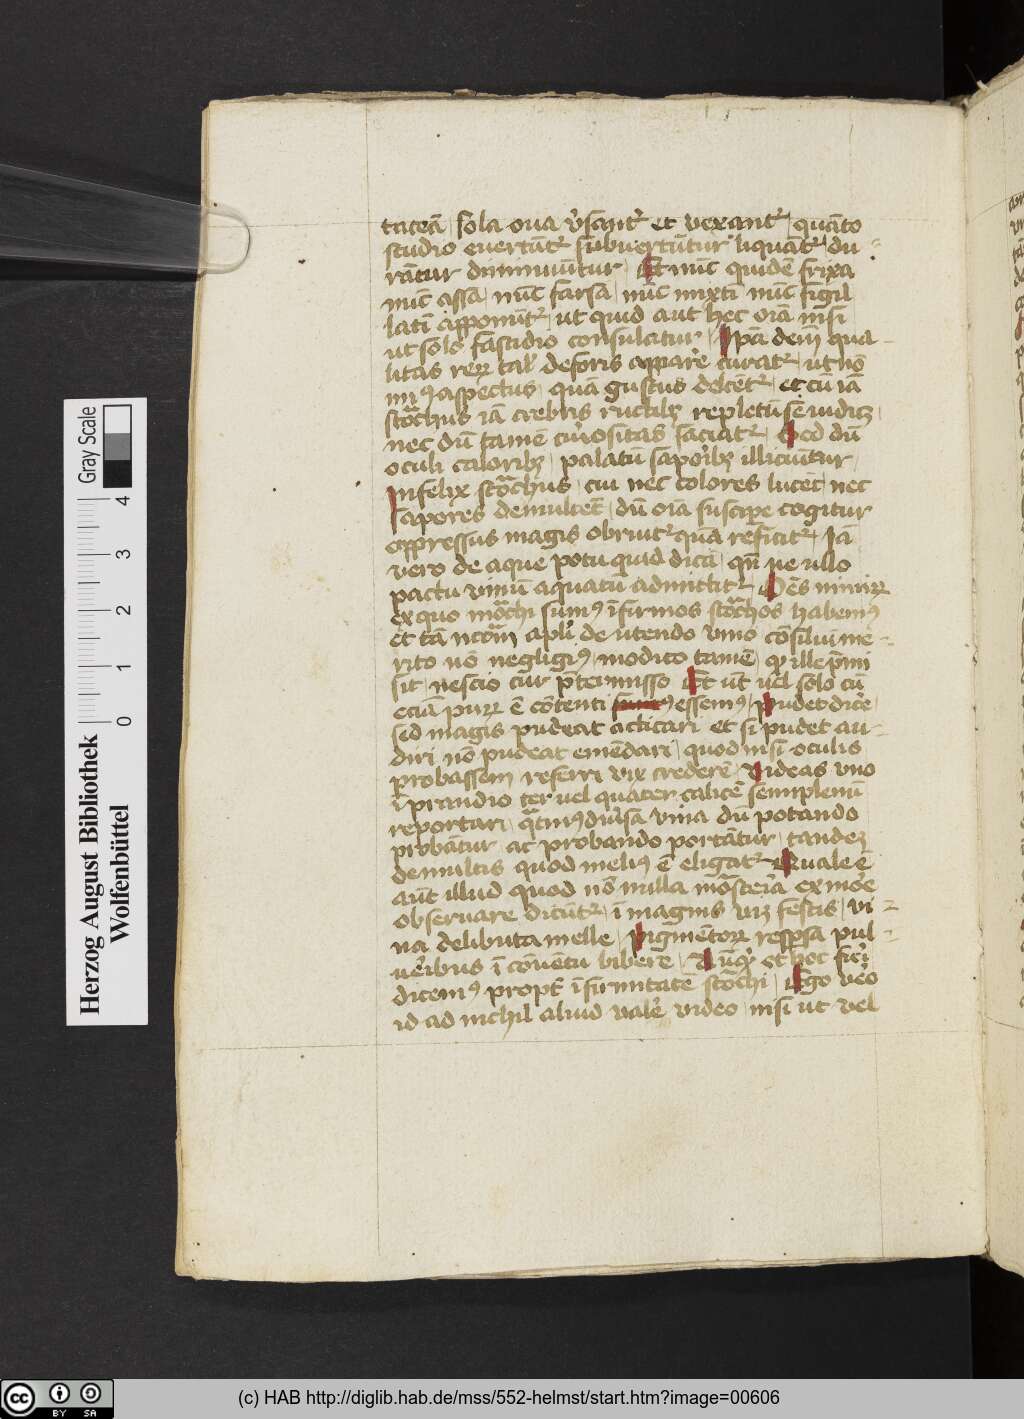 taceā sola oua v̓sant᷑ et vexant᷑ quāto
studio euertūt᷑ subuertūtur liquāt᷑ du-
rātur diminuūtur Et nūc quidē frixa
nūc assa nūc farsa nūc mixti nūc sigil
latī apponūt᷑ ut quid aut hec oīa nisi
ut soli fastidio consulatur Ip̄a dem̄ qua-
litas reꝝ tal̓ deforis appare curat᷑ ut nō
min⁹ aspectus quā gustus delcēt᷑ et cū iā
stōachus iā crebris ructibꝫ repletū se indicꝫ
nec dū tamē curiositas saciat᷑ Sed dū
oculi coloribꝫ palatū saporibꝫ illiciūtur
Infelix stōachus cui nec colores lucēt nec
sapores demulcēt dū oīa suscipe cogitur
oppressus magis obruit᷑ quā reficit᷑ Iā
vero de aque potu quid dicā qn̄ ne ullo
pactu vinū aquatū admittit᷑ Oēs nimiꝝ
ex quo mōachi sum⁹ īfirmos stōachos habem⁹
et tā nc̄āriū apl̓i de utendo vino cōsiliū me-
rito nō negligi⁹ modico tamē qꝫ ille p̄mi
sit nescio cur p̄termisso Et ut̄ vel solo cū
eciā puꝝ ē cōtenti essem⁹ Pudet dic̓e
sed magis pudeat actitari et si pudet au-
diri nō pudeat emēdari quod nisi oculis
probassem referri vix crederē Videas vno
ī prandio ter uel quater calicē semiplenū
reportari q̄tin⁹ diu̓sa vina dū potando
probātur ac probando portātur tandeꝫ
de multis quod meli⁹ ē eligat᷑ Quale ē
aut̄ illud quod nō nulla mōasteria ex more
obseruare dicūt᷑ ī magnis viꝫ festis vi-
na delibuta melle pigmētoꝝ resp̄sa pul-
ueribus ī cōuētu bibere Nūqͥ et hoc fieri
dicem⁹ propt̓ īfirmitatē stōachi Ego vero
id ad nichil aliud valere video nisi ut vel
Herzog August Bibliothek
Wolfenbüttel
Gray Scale
0 1 2 3 4
cc BY SA
(c) HAB http://diglib.hab.de/mss/552-helmst/start.htm?image=00606